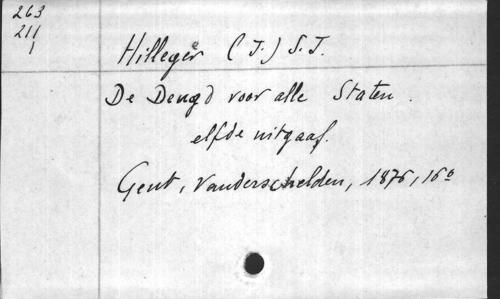 263
211
1
Hillegeer (J.) S.J.
De Deugd voor alle Staten.
elfde uitgaaf.
Gent, Vanderschelden, 1876, 16°